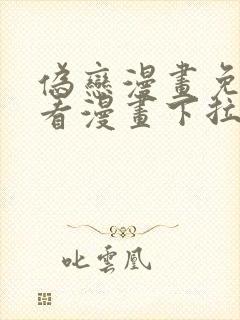 偽戀漫畫免
看漫畫下拉
叱雲凰